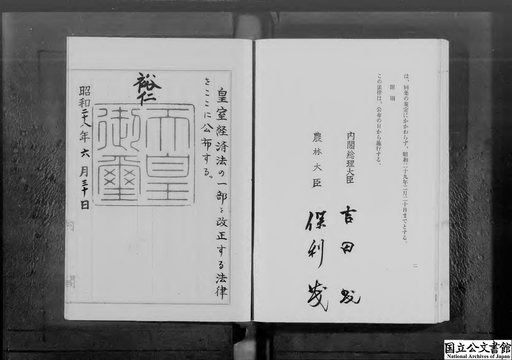 は、同条の規定にかかわらず、昭和二十九年二月二十日までとする。
附則
この法律は、公布の日から施行する。
内閣総理大臣 吉田茂
農林大臣 保利茂
二
皇室経済法の一部を改正する法律
をここに公布する。
裕仁
天皇御璽
昭和二十八年六月三十日
国立公文書館
National Archives of Japan